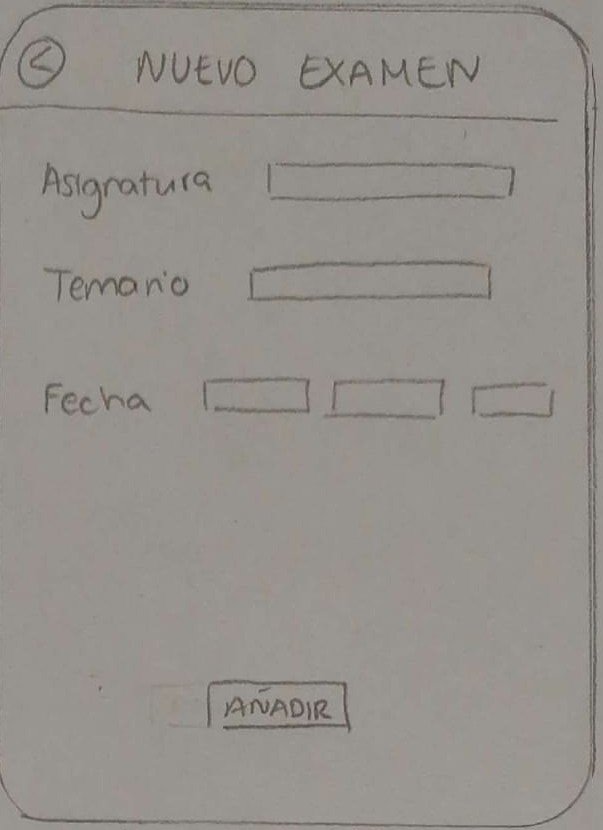 < NUEVO EXAMEN
Asignatura
Temario
Fecha
AÑADIR